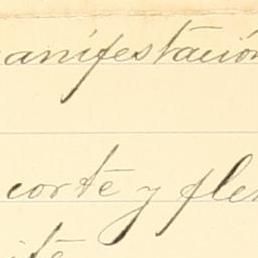 anifestación
corte y fle
ite